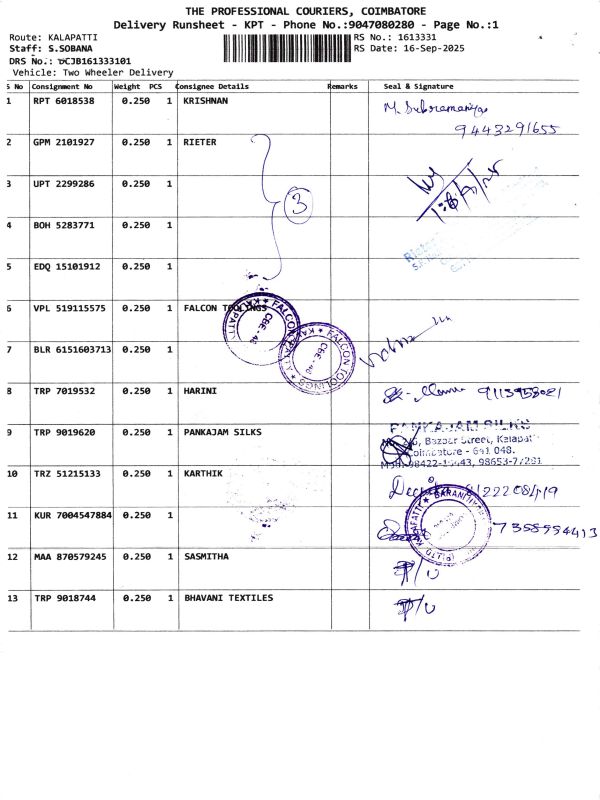 THE PROFESSIONAL COURIERS, COIMBATORE
Delivery Runsheet - KPT - Phone No.:9047080280 - Page No.:1
Route: KALAPATTI RS No.: 1613331
Staff: S.SOBANA RS Date: 16-Sep-2025
DRS No.: DCJB161333101
Vehicle: Two Wheeler Delivery
S No Consignment No Weight PCS Consignee Details Remarks Seal & Signature
1 RPT 6018538 0.250 1 KRISHNAN M. Subramaniya
9443291655
2 GPM 2101927 0.250 1 RIETER
3 UPT 2299286 0.250 1
3
4 BOH 5283771 0.250 1
5 EDQ 15101912 0.250 1
6 VPL 519115575 0.250 1 FALCON TOOLINGS
FALCON TOOLINGS ★ KALAPATTI ★
CBE - 48
7 BLR 6151603713 0.250 1
FALCON TOOLINGS ★ KALAPATTI ★
CBE - 48
8 TRP 7019532 0.250 1 HARINI
9 TRP 9019620 0.250 1 PANKAJAM SILKS PANKAJAM SILKS
Bazaar Street, Kalapatti
Coimbatore - 641 048.
10 TRZ 51215133 0.250 1 KARTHIK
11 KUR 7004547884 0.250 1 7358994413
12 MAA 870579245 0.250 1 SASMITHA P/U
13 TRP 9018744 0.250 1 BHAVANI TEXTILES P/U